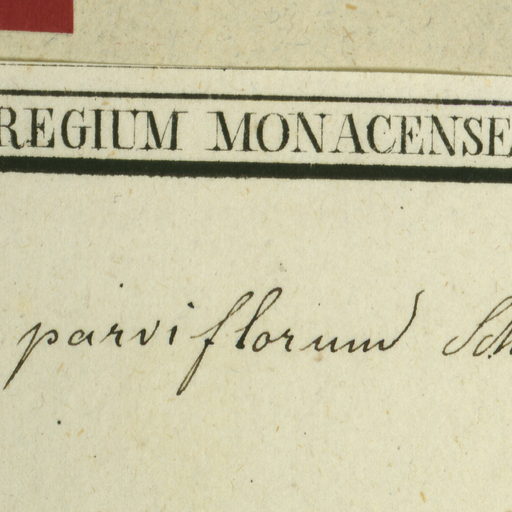 REGIUM MONACENSE
parviflorum Sch